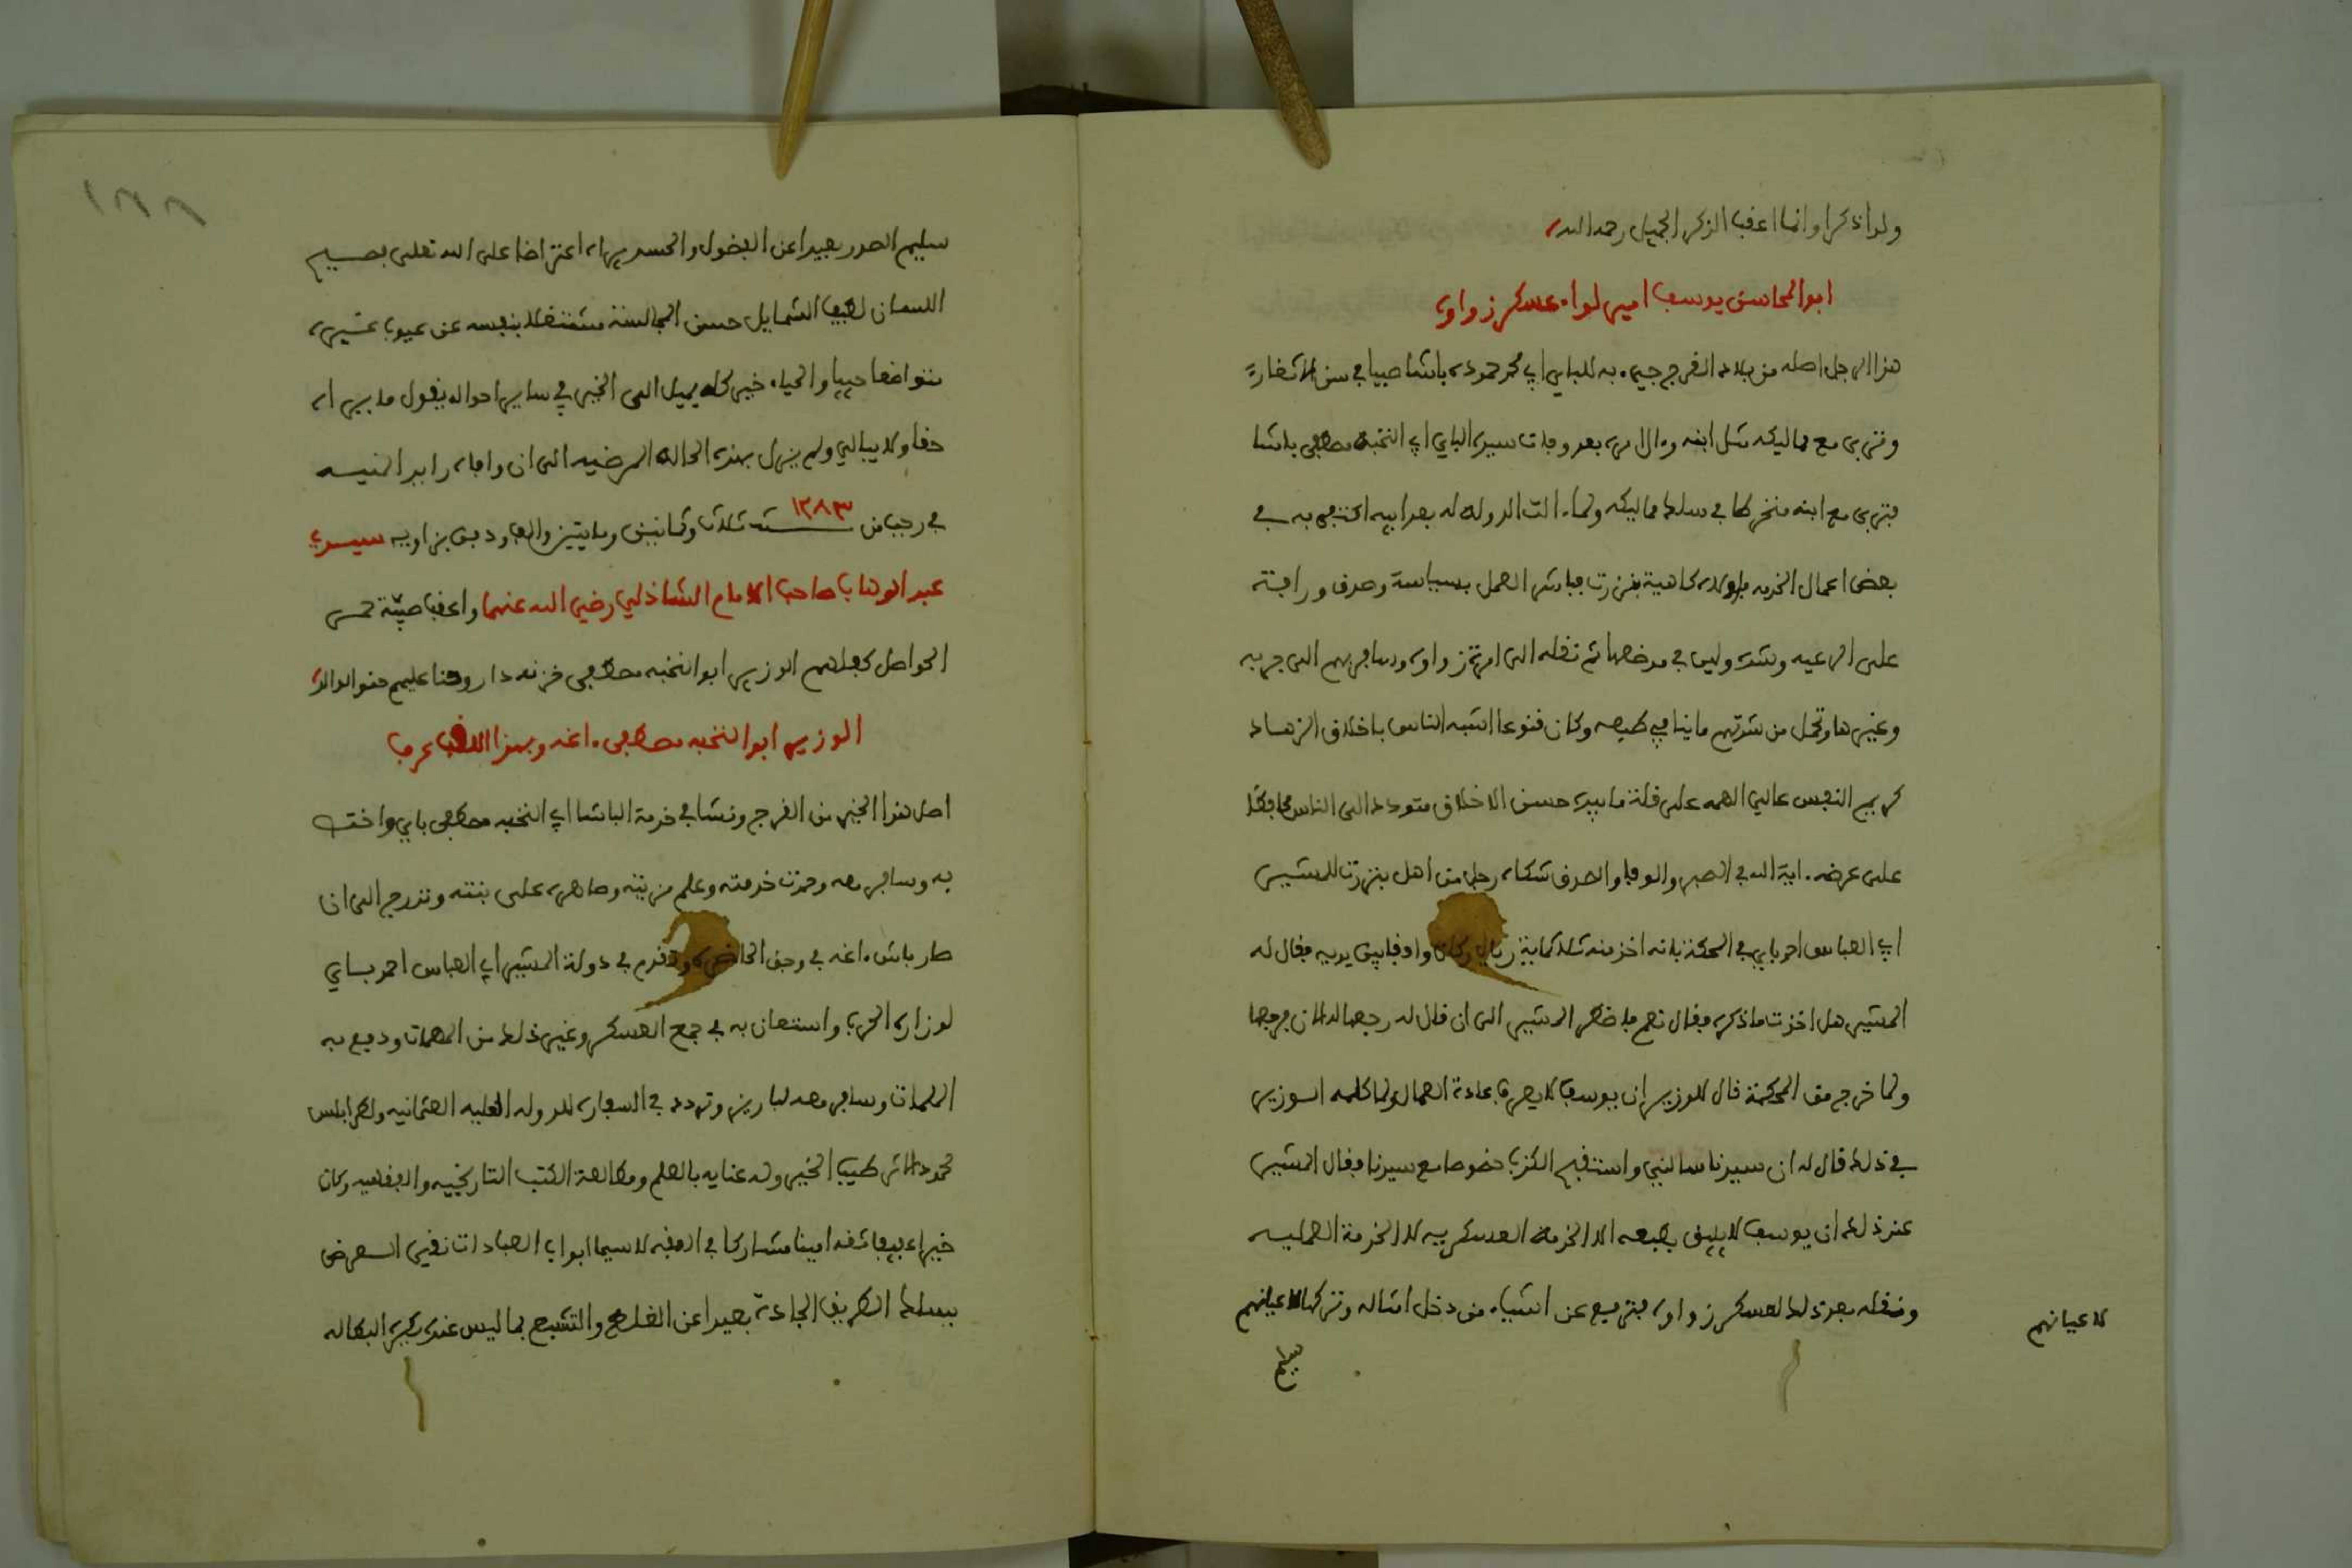 ولدا ذكرا وانما اعقب الذكر الجميل رحمه الله
ابو المحاسن يوسف امير لواء عسكر زواوة
هذا الرجل اصله من بلاد الفرج جيء به للباي ابي محمد حمودة باشا صبيا في سن الاثغار
وتربى مع مماليكه مثل ابنه وءال امره بعد وفاة سيده الباي ابي النخبة مصطفى باشا
فتربى مع ابنه منخرطا في سلك مماليكه ولما ءالت الدولة له بعد ابيه اكتفى به في
بعض اعمال الخدمه فاولاه كاهية بنزرت فباشر العمل بسياسة وصدق ورافة
على الرعيه وشدة ولين في موضعهما ثم نقله الى امرة زواوة وسافر بهم الى جربه
وغيرها وتحمل من شدتهم ما ينافي طبعه وكان قنوعا اشبه الناس باخلاق الزهاد
كريم النفس عالي الهمه على قلة ما بيده حسن الاخلاق متوددا الى الناس محافظا
على عرضه ءاية الله في الصبر والوفا والصدق شكاه رجل من اهل بنزرت للمشير
ابي العباس احمد باي في المحكمة بانه اخذ منه ثلاثماية ريال وكان واقفا بين يديه فقال له
المشير هل اخذت ما ذكره فقال نعم الى ان قال له رجعها له الان فرجعها
ولما خرج من المحكمة قال للوزير ان يوسف لا يعرف عادة العمال ولما كلمه الوزير
في ذلك قال له ان سيدنا سالني واستقبح الكذب خصوصا مع سيدنا فقال المشير
عند ذلك ان يوسف لا يليق بطبعه الا الخدمة العسكريه لا الخدمة العمليه
ونقله بعد ذلك لعسكر زواوة فترفع عن اشياء من دخل امثاله وتركها لاعيانهم
لاعيانهم
سليم
١٨٨
سليم الصدر بعيدا عن الفضول والحسد يراه اعتراضا على الله تعلى فصيح
اللسان لطيف الشمايل حسن المجالسة مشتغلا بنفسه عن عيوب غيره
متواضعا حييا والحياء خير كله يميل الى الخير في ساير احواله يقول ما يراه
حقا ولا يبالي ولم يزل بهذه الحالة المرضيه الى ان وافاه رايد المنيه
في رجب من سنة ١٢٨٣ ثلاث وثمانين ومايتين والف ودفن بزاويه سيدي
عبد الوهاب صاحب الامام الشاذلي رضي الله عنهما واعقب صبية حمر
الحواصل كفلهم الوزير ابو النخبه مصطفى خزنه دار وحنا عليهم حنو الوالد
الوزير ابو النخبه مصطفى ءاغه وبهذا اللقب عرف
اصل هذا الخير من الفرج ونشا في خدمة الباشا ابي النخبه مصطفى باي واختص
به وسافر معه وحمدت خدمته وعلم مزيته وصاهره على بنته وتدرج الى ان
صار باش ءاغه في وجق الحاضرة وتقدم في دولة المشير ابي العباس احمد باي
لوزارة الحرب واستعان به في جمع العسكر وغير ذلك من المهمات ودفع به
الملمات وسافر معه لباريز وتردد في السفارة للدوله العليه العثمانيه ولطرابلس
محمود الاثر طيب الخبر وله عناية بالعلم ومطالعة الكتب التاريخيه والفقهيه وكان
خيرا عفيفا ثقه امينا مشاركا في الفقه لاسيما ابواب العبادات نقي العرض
يسلك الطريق الجادة بعيدا عن الملق والتشبع بما ليس عنده يكره البطاله